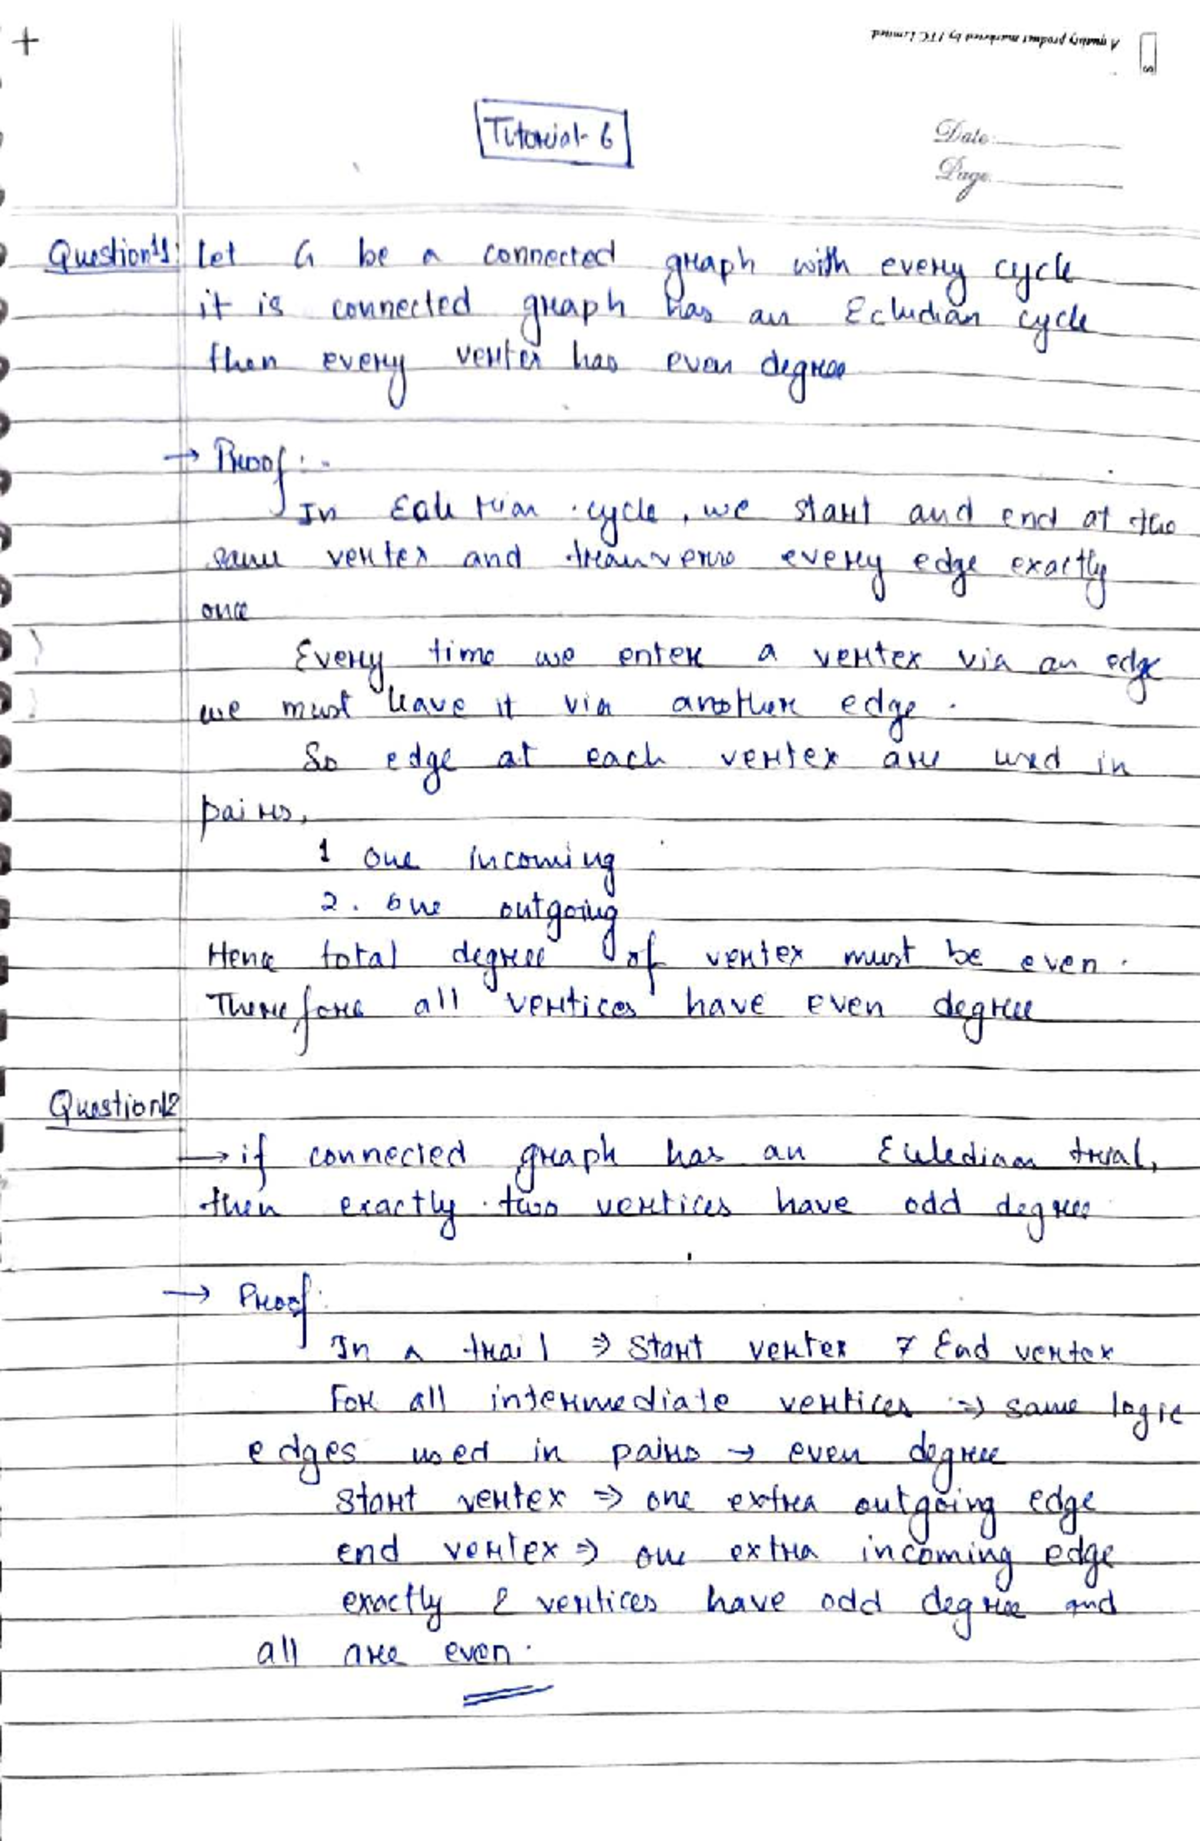 A quality product marketed by ITC Limited
Tutorial-6
Date:
Page
Question11: Let G be a connected graph with every cycle
it is connected graph has an Ecludian cycle
then every vertex has even degree
→ Proof:-
In cycle, we start and end at the
same vertex and every edge exactly
once
Every time we enter a vertex via an edge
we must leave it via another edge.
So edge at each vertex are used in
pairs,
1 one incoming
2. one outgoing
Hence total degree of vertex must be even.
Therefore all vertices have even degree
Question12
→ if connected graph has an Euledian trial,
then exactly two vertices have odd degree
→ Proof:
In a trail ⇒ Start vertex ≠ End vertex
For all intermediate vertices ⇒ same logic
edges used in pairs → even degree
start vertex ⇒ one extra outgoing edge
end vertex ⇒ one extra incoming edge
exactly 2 vertices have odd degree and
all are even.